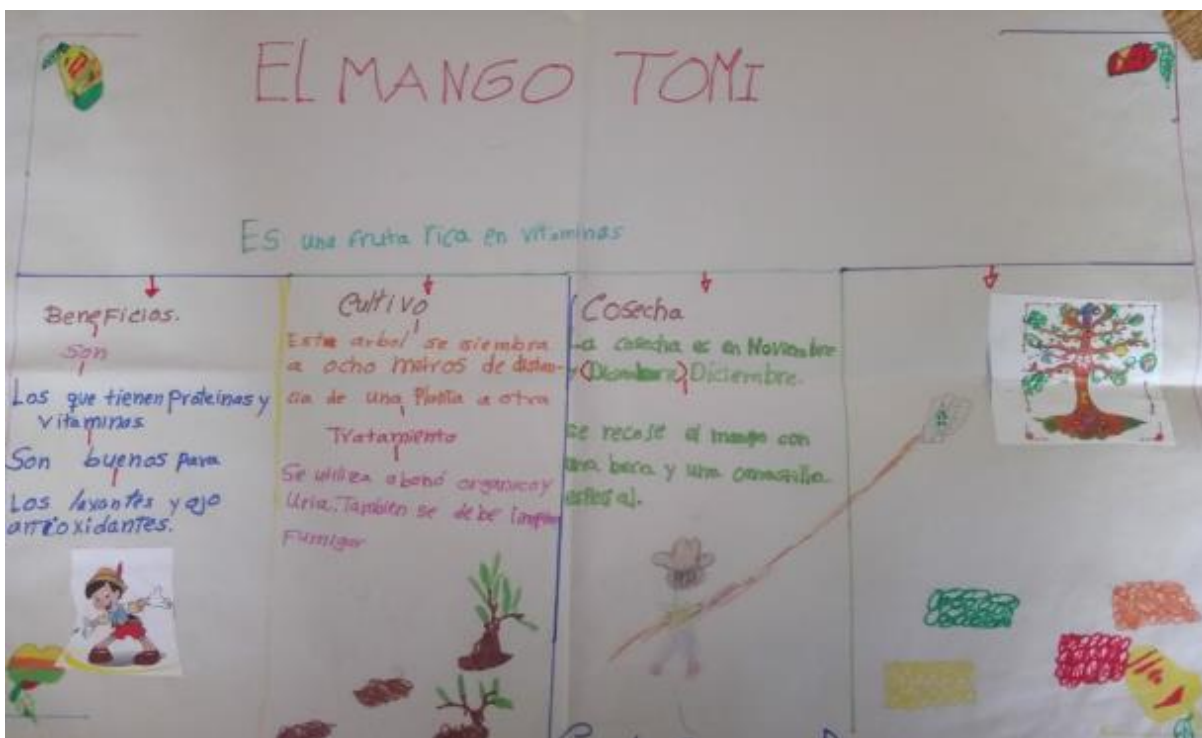 EL MANGO TOMI
Es una fruta rica en vitaminas
Beneficios.
Son
Los que tienen proteinas y
vitaminas
Son buenos para
Los laxantes y ajo
antioxidantes.
Cultivo
Este arbol se siembra
a ocho metros de distan-
cia de una Planta a otra
Tratamiento
Se utiliza abonó organico y
Uria. También se debe
Fumigar
Cosecha
La cosecha es en Noviembre
Diciembre.
se recose el mango con
una bara y una canastilla